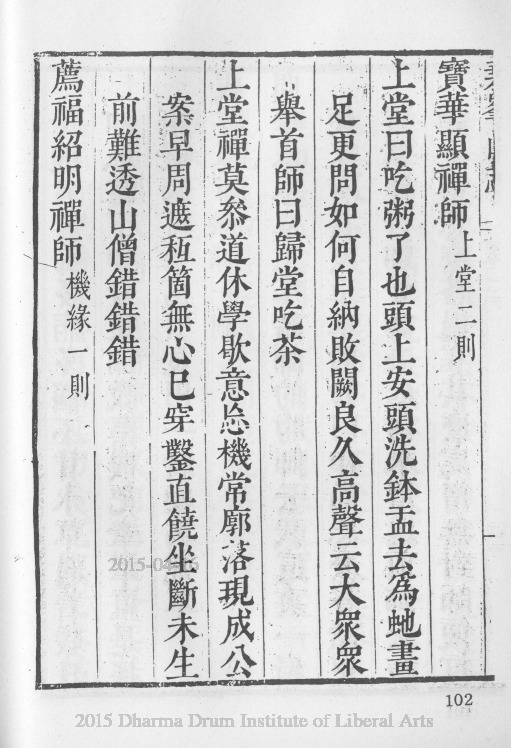 寶華顯禪師上堂二則
上堂曰吃粥了也頭上安頭洗鉢盂去為虵畫
足更問如何自納敗闕良久高聲云大衆衆
舉首師曰歸堂吃茶
上堂禪莫叅道休學歇意忘機常廓落現成公
案早周遮秖箇無心已穿鑿直饒坐斷未生
前難透山僧錯錯錯
薦福紹明禪師機緣一則
102
2015 Dharma Drum Institute of Liberal Arts